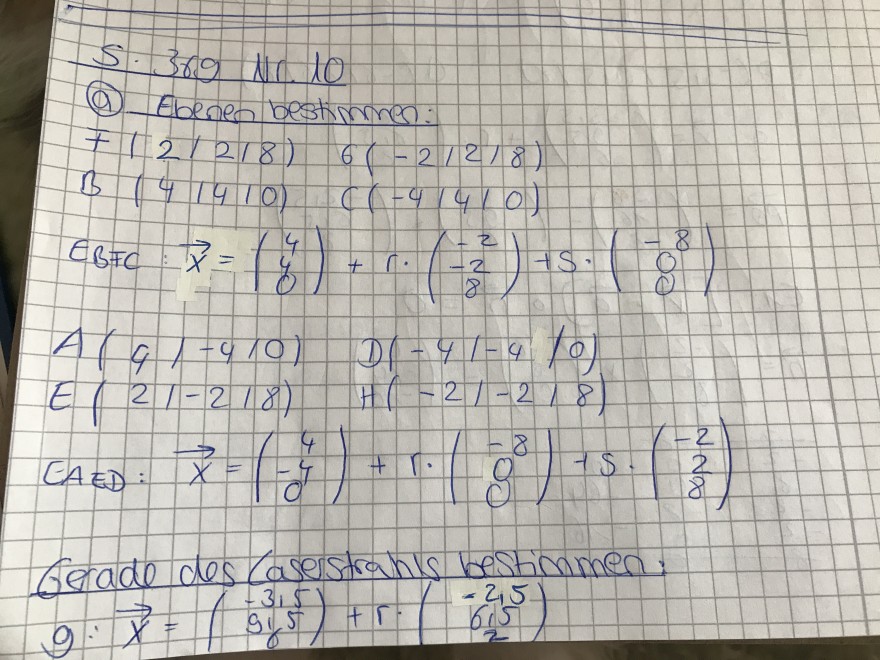 S. 369 Nr. 10
a) Ebenen bestimmen:
F ( 2 | 2 | 8 ) G ( -2 | 2 | 8 )
B ( 4 | 4 | 0 ) C ( -4 | 4 | 0 )
E BFC : x⃗ = ( 4 4 0 ) + r · ( -2 -2 8 ) + s · ( -8 0 0 )
A ( 4 | -4 | 0 ) D ( -4 | -4 | 0 )
E ( 2 | -2 | 8 ) H ( -2 | -2 | 8 )
E AED : x⃗ = ( 4 -4 0 ) + r · ( -8 0 0 ) + s · ( -2 2 8 )
Gerade des Laserstrahls bestimmen:
g : x⃗ = ( -3,5 9,5 6 ) + r · ( -2,5 6,5 2 )